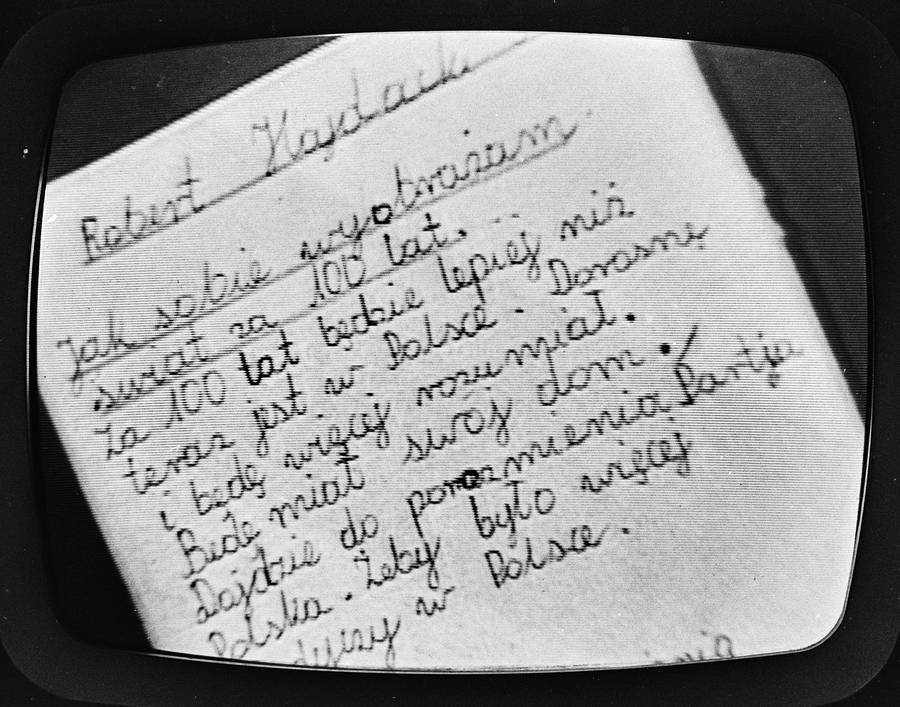 Robert Hajdacki
Jak sobie wyobrażam
świat za 100 lat.
Za 100 lat będzie lepiej niż
teraz jest w Polsce. Dorosnę
i będę więcej rozumiał.
Będe miał swój dom.
Dojdzie do porozmienia Partja
Polska. Żeby było więcej
w Polsce.